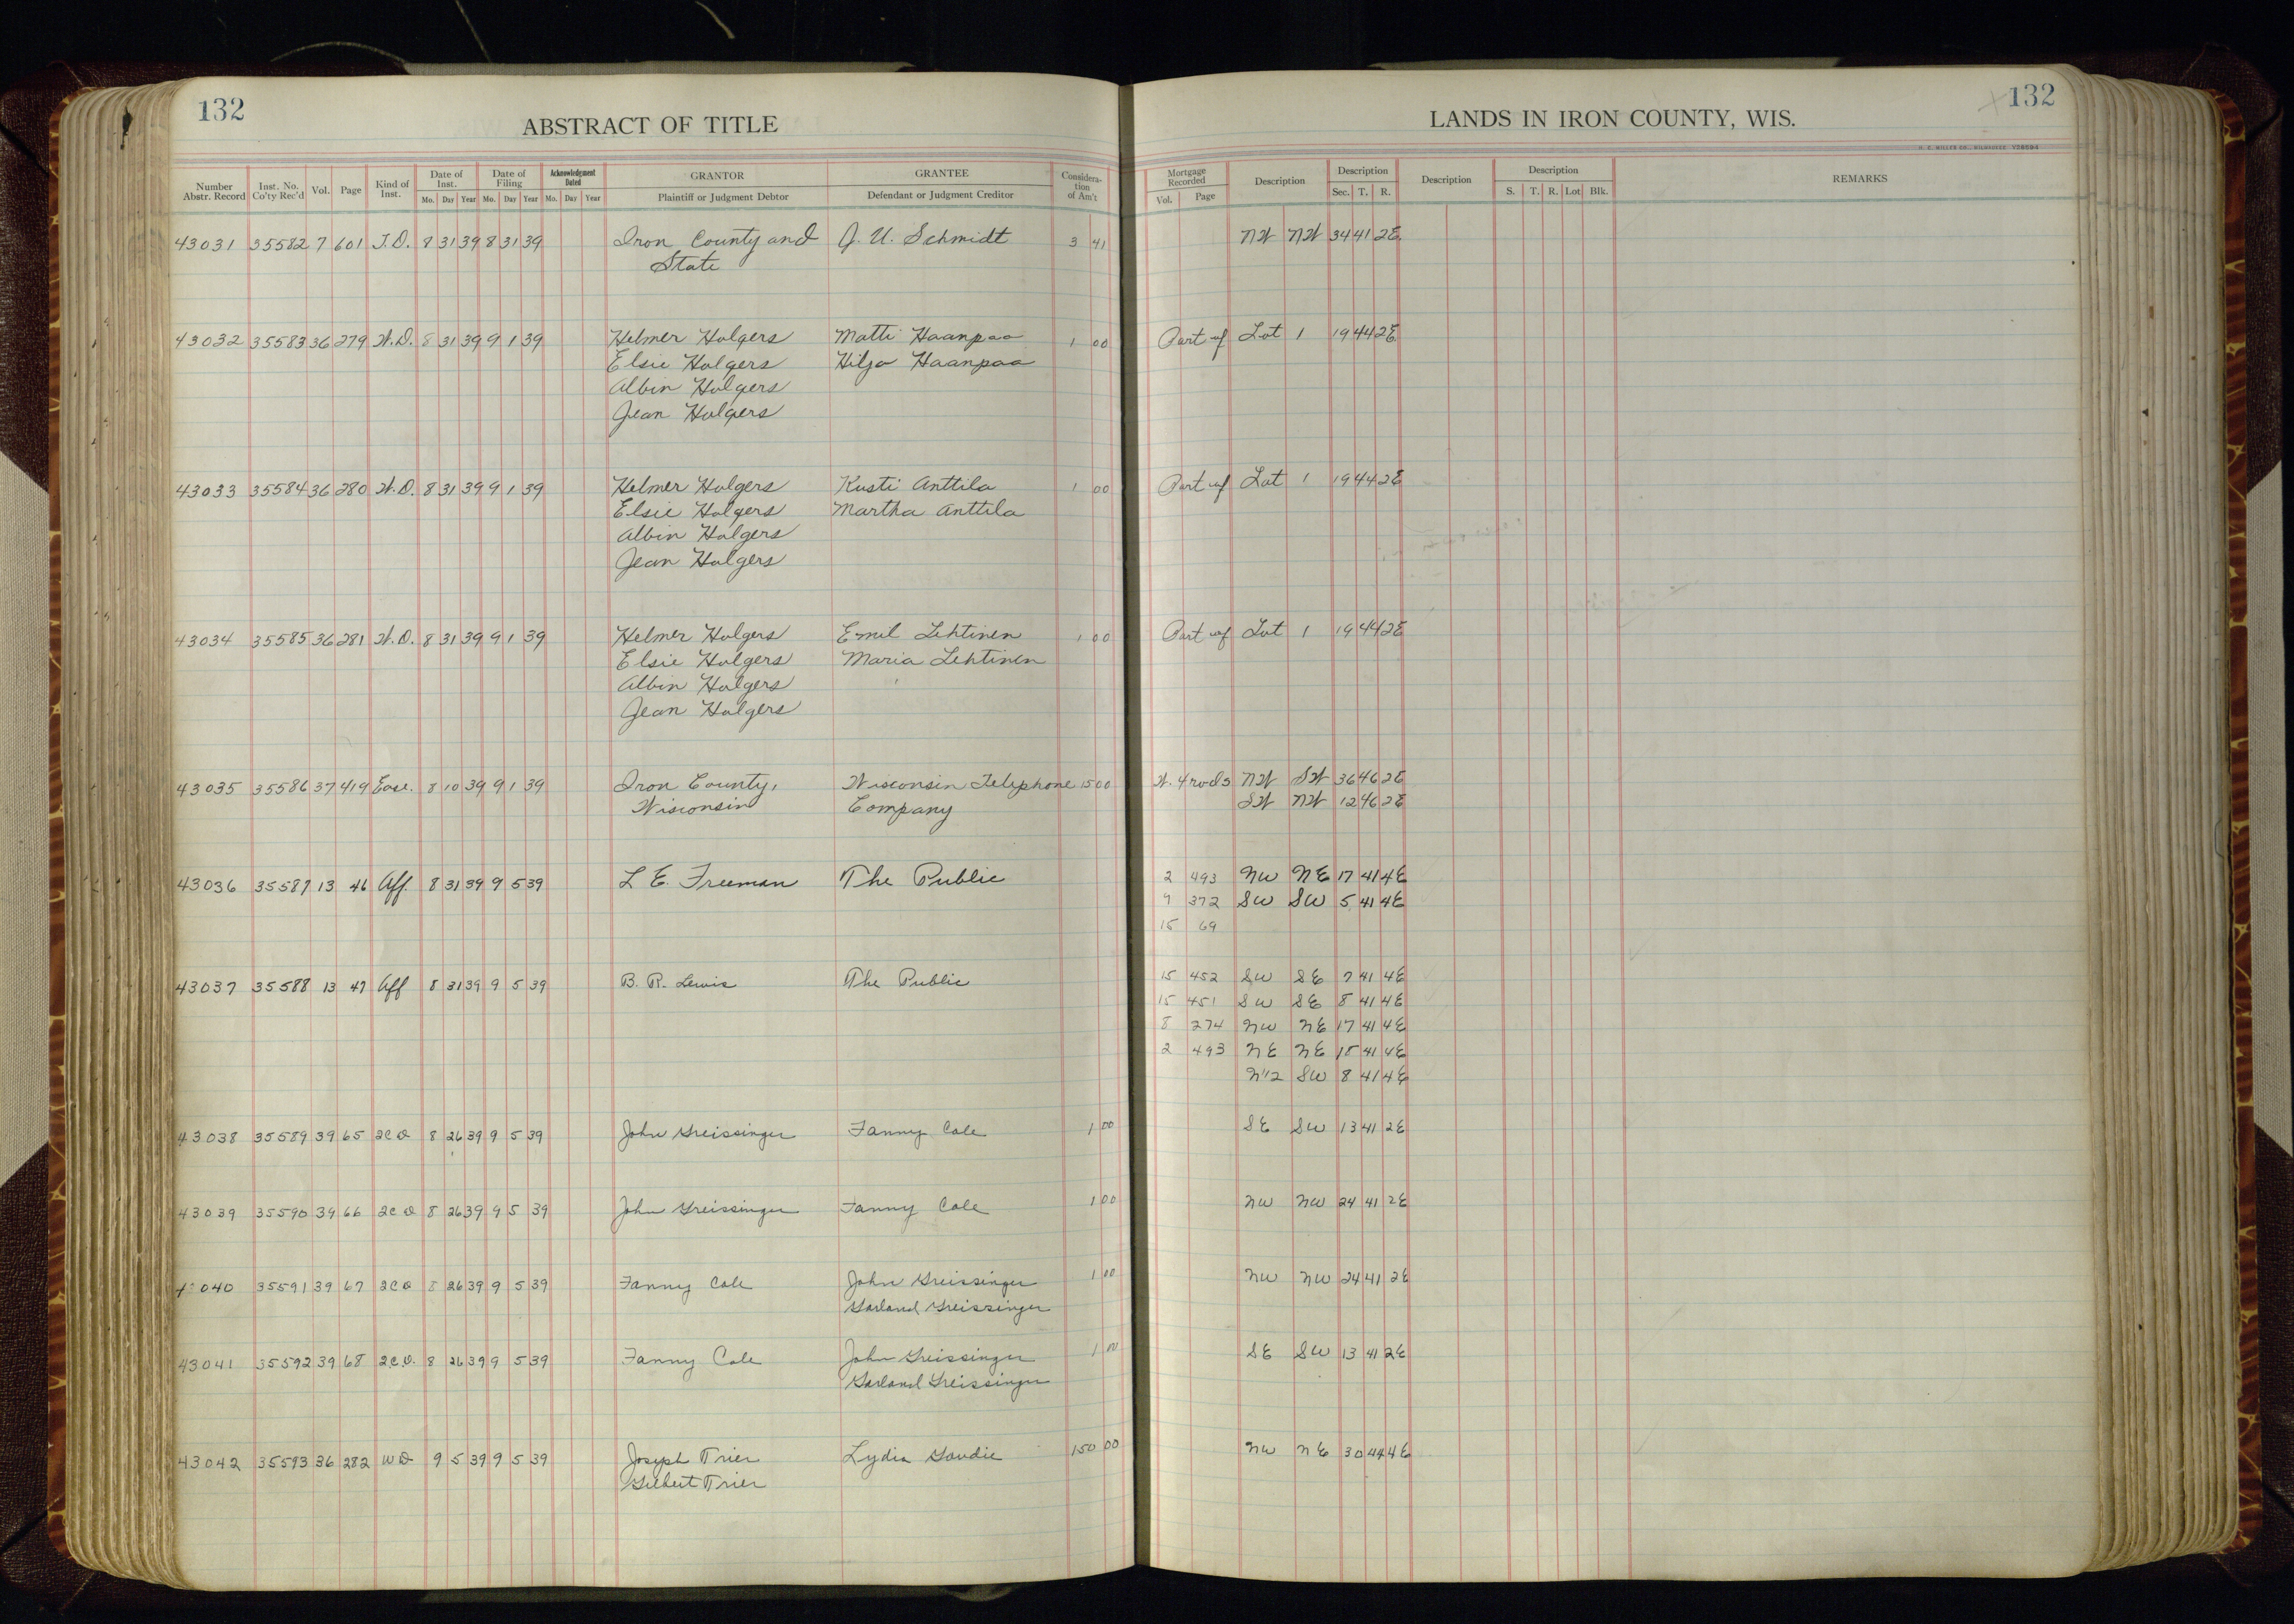 132
ABSTRACT OF TITLE
Number Abstr. Record Inst. No. Co'ty Rec'd Vol. Page Kind of Inst. Date of Inst. Mo. Day Year Date of Filing Mo. Day Year Acknowledgment Dated Mo. Day Year GRANTOR Plaintiff or Judgment Debtor GRANTEE Defendant or Judgment Creditor Considera-tion of Am't
LANDS IN IRON COUNTY, WIS.
132
H. C. MILLER CO., MILWAUKEE
Mortgage Recorded Vol. Page Description Description Sec. T. R. Description Description S. T. R. Lot Blk. REMARKS
43031 35582 7 601 T.D. 8 31 39 8 31 39 Iron County and J. U. Schmidt 3 41 NW NW 34 41 2E
State
43032 35583 36 279 W.D. 8 31 39 9 1 39 Helmer Holgers Matti Haanpaa 1 00 Part of Lot 1 19 44 2E
Elsie Holgers Hilja Haanpaa
Albin Holgers
Jean Holgers
43033 35584 36 280 W.D. 8 31 39 9 1 39 Helmer Holgers Kusti Anttila 1 00 Part of Lot 1 19 44 2E
Elsie Holgers Martha Anttila
Albin Holgers
Jean Holgers
43034 35585 36 281 W.D. 8 31 39 9 1 39 Helmer Holgers Emil Lehtinen 1 00 Part of Lot 1 19 44 2E
Elsie Holgers Maria Lehtinen
Albin Holgers
Jean Holgers
43035 35586 37 419 Ease. 8 10 39 9 1 39 Iron County, Wisconsin Telephone 15 00 W. 4 rods NW SW 36 46 2E
Wisconsin Company SW NW 12 46 2E
43036 35587 13 46 Aff. 8 31 39 9 5 39 L E. Freeman The Public 2 493 NW NE 17 41 4E
9 372 SW SW 5 41 4E
15 69
43037 35588 13 47 Aff 8 31 39 9 5 39 B. R. Lewis The Public 15 452 SW SE 7 41 4E
15 451 SW SE 8 41 4E
8 274 NW NE 17 41 4E
2 493 NE NE 18 41 4E
N1/2 SW 8 41 4E
43038 35589 39 65 2CD 8 26 39 9 5 39 John Greissinger Fanny Cole 1 00 SE SW 13 41 2E
43039 35590 39 66 2CD 8 26 39 9 5 39 John Greissinger Fanny Cole 1 00 NW NW 24 41 2E
43040 35591 39 67 2CD 8 26 39 9 5 39 Fanny Cole John Greissinger 1 00 NW NW 24 41 2E
Garland Greissinger
43041 35592 39 68 2C.D. 8 26 39 9 5 39 Fanny Cole John Greissinger 1 00 SE SW 13 41 2E
Garland Greissinger
43042 35593 36 282 WD 9 5 39 9 5 39 Joseph Trier Lydia Goudie 150 00 NW NE 30 44 4E
Gilbert Trier